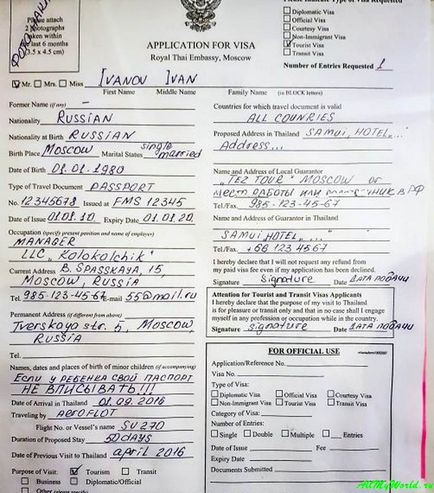 Please Indicate Type of Visa Requested
Diplomatic Visa
Official Visa
Courtesy Visa
Non-Immigrant Visa
Tourist Visa
Transit Visa
Number of Entries Requested 1
Please attach
2 photographs
taken within
last 6 months
(3.5 x 4.5 cm)
APPLICATION FOR VISA
Royal Thai Embassy, Moscow
Mr. Mrs. Miss IVANOV IVAN
First Name Middle Name Family Name (in BLOCK letters)
Former Name (if any) -
Nationality RUSSIAN
Nationality at Birth RUSSIAN
Birth Place MOSCOW Marital Status single married
Date of Birth 01.01.1980
Type of Travel Document PASSPORT
No. 12345678 Issued at FMS 12345
Date of Issue 01.01.10 Expiry Date 01.01.20
Occupation (specify present position and name of employer)
MANAGER
LLC „Kolokolchik"
Current Address B. SPASSKAYA, 15
MOSCOW, RUSSIA
Tel. 985-123-45-67 E-mail 55@mail.ru
Permanent Address (if different from above)
Tverskaya str. 5, Moscow
RUSSIA
Tel.
Names, dates and places of birth of minor children (if accompanying)
Если у ребенка свой паспорт
НЕ ВПИСЫВАТЬ!!!
Date of Arrival in Thailand 01.09.2016
Traveling by AEROFLOT
Flight No. or Vessel's name SU 270
Duration of Proposed Stay 50 DAYS
Date of Previous Visit to Thailand april 2016
Purpose of Visit: Tourism Transit
Business Diplomatic/Official
Other (please specify)
Countries for which travel document is valid
ALL COUNRIES
Proposed Address in Thailand SAMUI, HOTEL „..."
Address...
Name and Address of Local Guarantor
„TEZ TOUR" MOSCOW or
место РАБОТЫ ИЛИ В РФ
Tel./Fax. 985-123-45-67
Name and Address of Guarantor in Thailand
SAMUI HOTEL „..."
Tel./Fax. +66 123 4567
I hereby declare that I will not request any refund from
my paid visa fee even if my application has been declined.
Signature signature Date ДАТА ПОДАЧИ
Attention for Tourist and Transit Visas Applicants
I hereby declare that the purpose of my visit to Thailand is
for pleasure or transit only and that in no case shall I engage
myself in any profession or occupation while in the country.
Signature signature Date ДАТА ПОДАЧИ
FOR OFFICIAL USE
Application/Reference No.
Visa No.
Type of Visa:
Diplomatic Visa Official Visa Courtesy Visa
Non-Immigrant Visa Tourist Visa Transit Visa
Category of Visa:
Number of Entries:
Single Double Multiple Entries
Date of Issue Fee
Expiry Date
Documents Submitted
AllMyWorld.ru